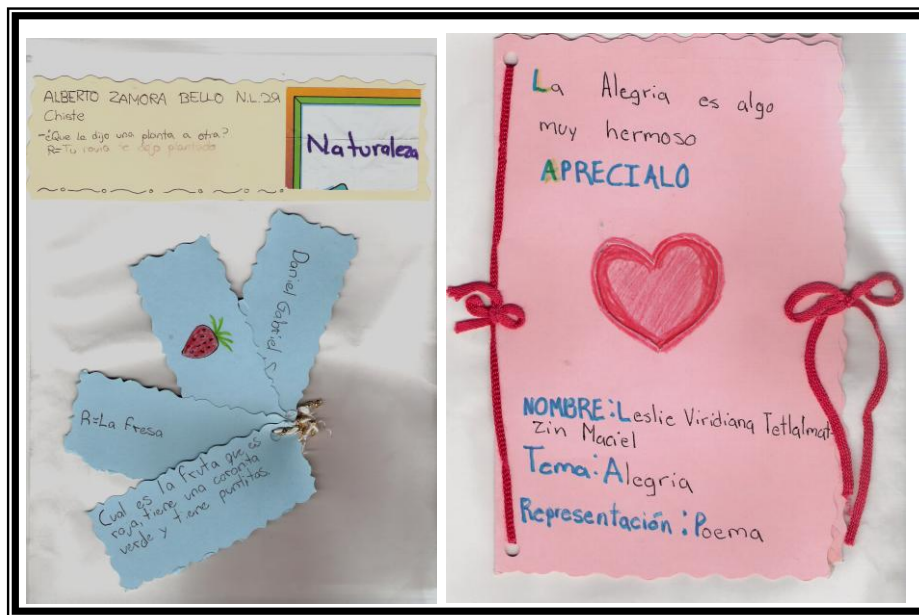 ALBERTO ZAMORA BELLO N.L.29
Chiste
-¿Que le dijo una planta a otra?
R=Tu novio te dejo plantada
Naturaleza
Daniel Gabriel
R=La fresa
Cual es la fruta que es
roja, tiene una coronta
verde y tiene puntitos
La Alegria es algo
muy hermoso
APRECIALO
NOMBRE:Leslie Viridiana Tetlalmat-
zin Maciel
Tema:Alegria
Representación:Poema